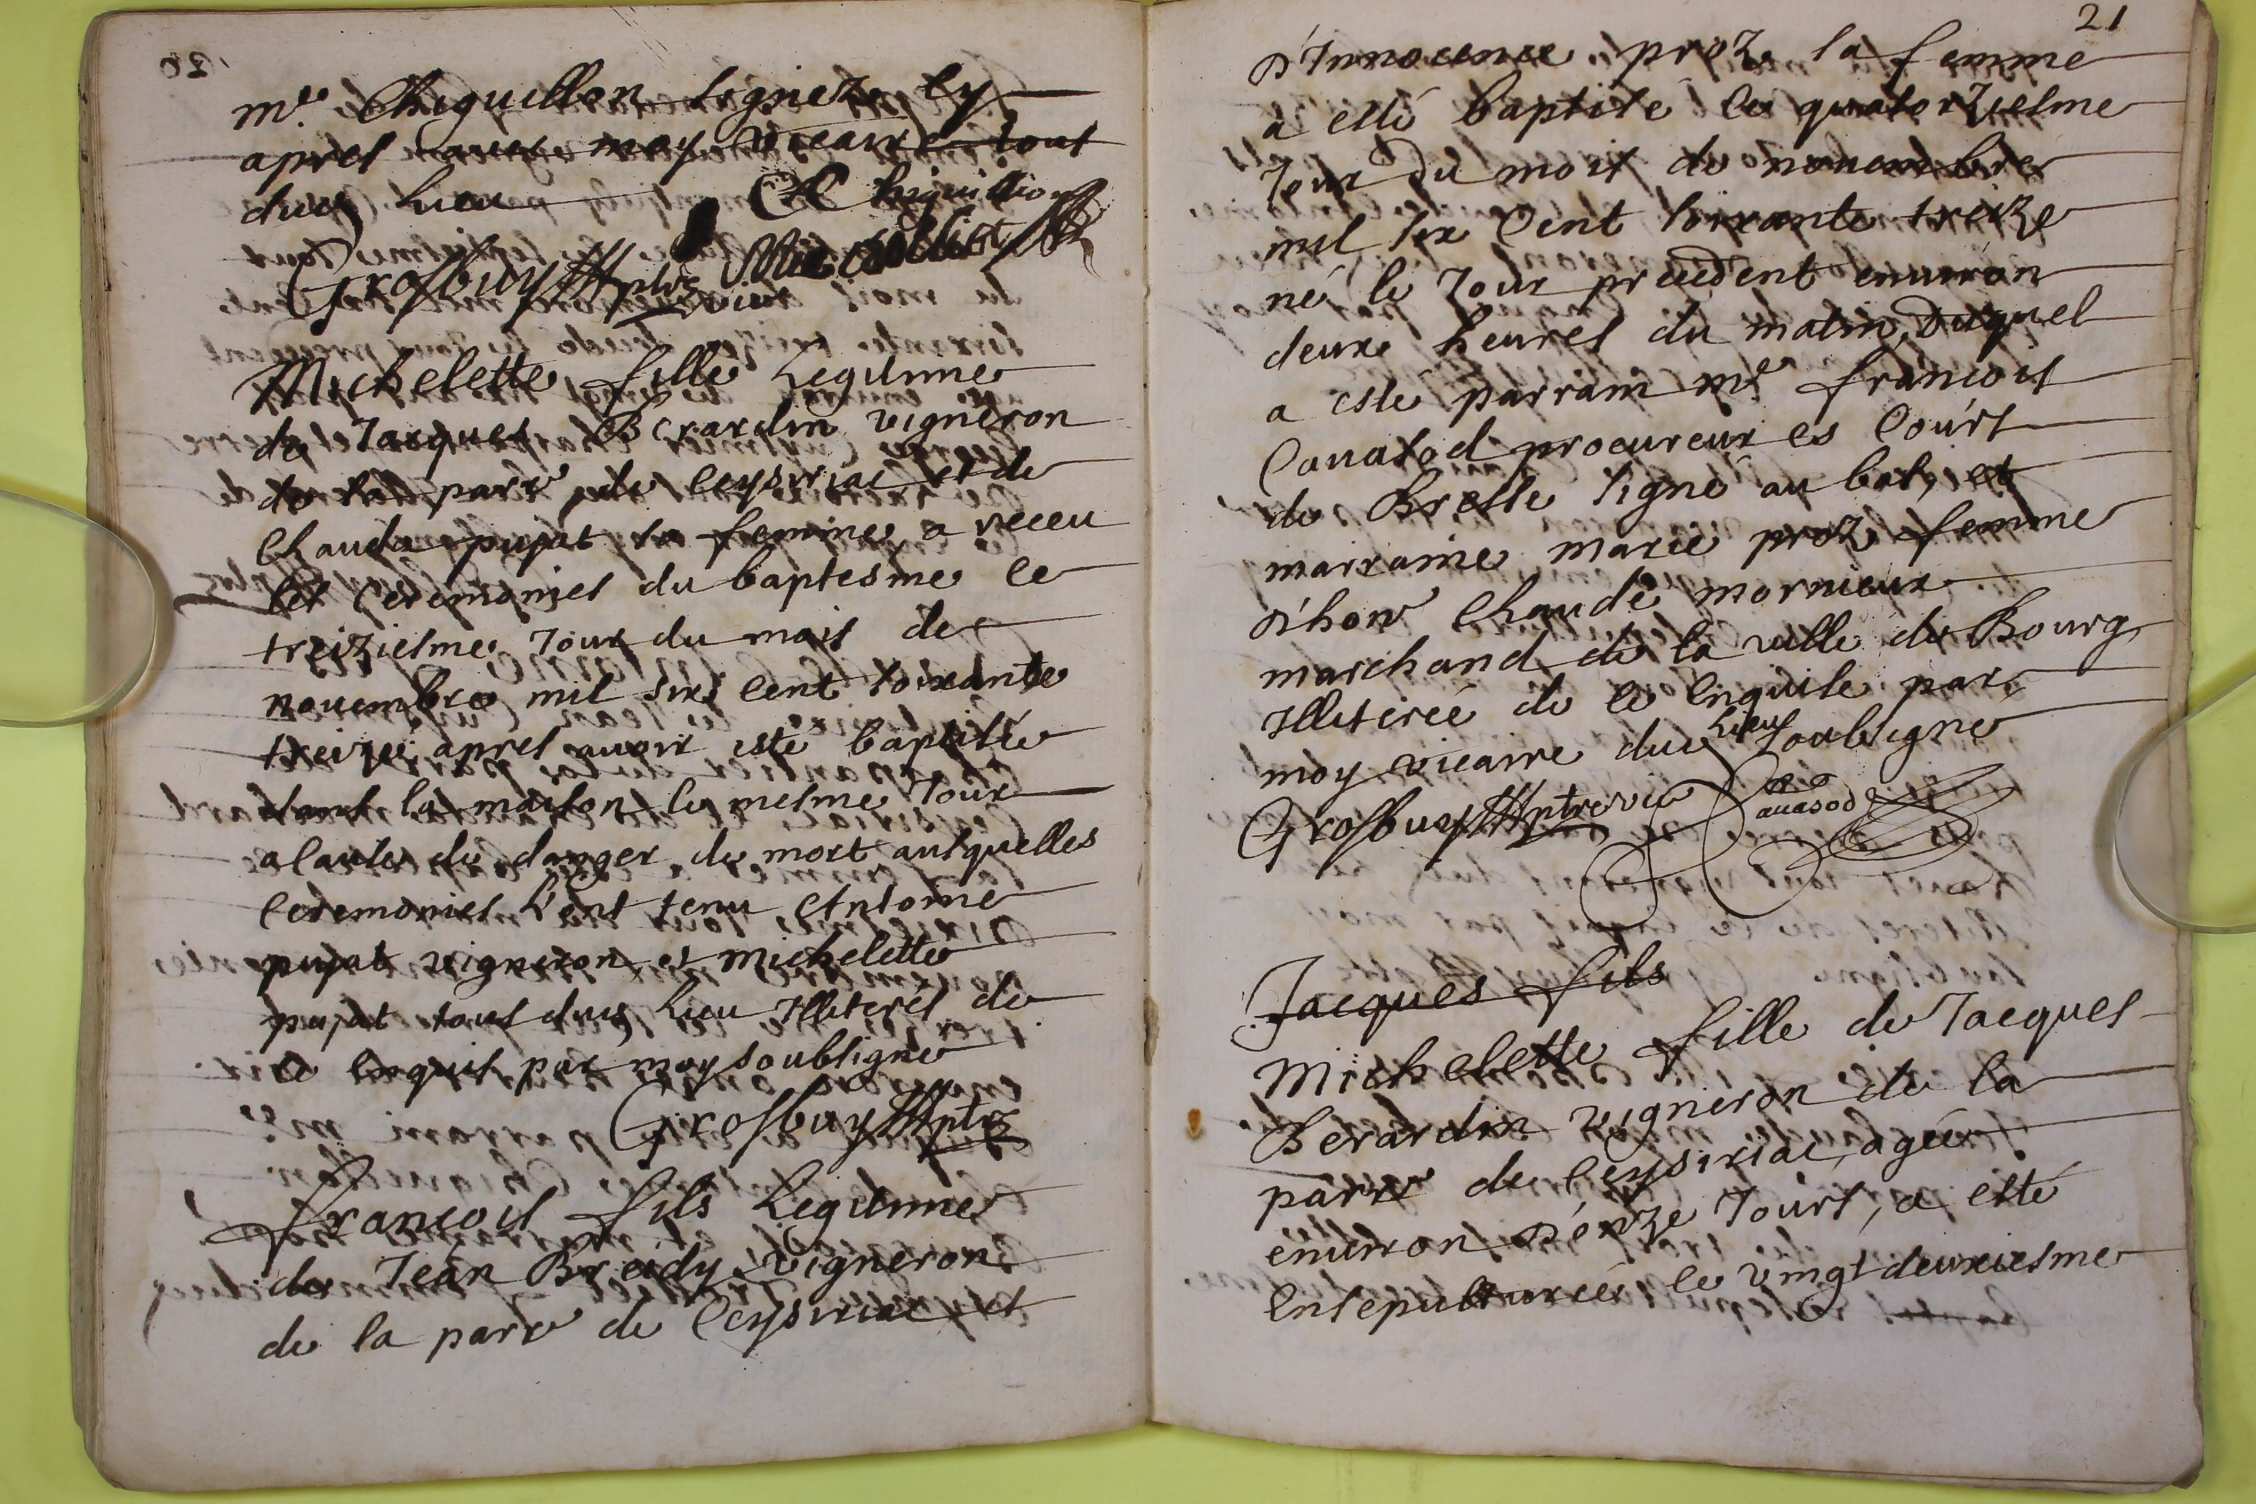 me Chiquillon signez cy
apres avec moy vicaire tout
dudt lieu Chiquillion
Grosbuy ptre vic
Michelette fille legitime
de Jacques Berardin vigneron
de la parr de Ceysiriac et de
Clauda pujat sa femme a receu
les ceremonies du baptesme le
treiziesme Jour du mois de
nouembre mil six cent soixante
treize apres auoir esté baptisée
dans la maison le mesme Jour
a cause du danger de mort ausquelles
ceremonies l'ont tenu Antoine
pujat vigneron et michelette
pujat tous dudt lieu Illiterés de
ce enquis par moy soubsigne
Grosbuy ptre
francois fils legitime
de Jean Breidy vigneron
de la parr de Ceysiriac et
21
d'Innocence proz sa femme
a esté baptisé le quatorziesme
Jour du mois de nouembre
mil six cent soixante treize
né le Jour precedent enuiron
deux heures du matin, Duquel
a esté parrain me francois
Cauasod procureur es Cours
de Bresse signé au bas, et
marraine marie proz femme
d'hon Claude mornieux
marchand de la ville de Bourg
Illiterée de ce enquise par
moy vicaire dudt lieu soubsigne
Grosbuy ptre vic Cauasod
Jacques fils
Michelette fille de Jacques
Berardin vigneron de la
parr de Ceysiriac, agée
enuiron d'onze Jours, a esté
ensepulturée le vingt deuxiesme